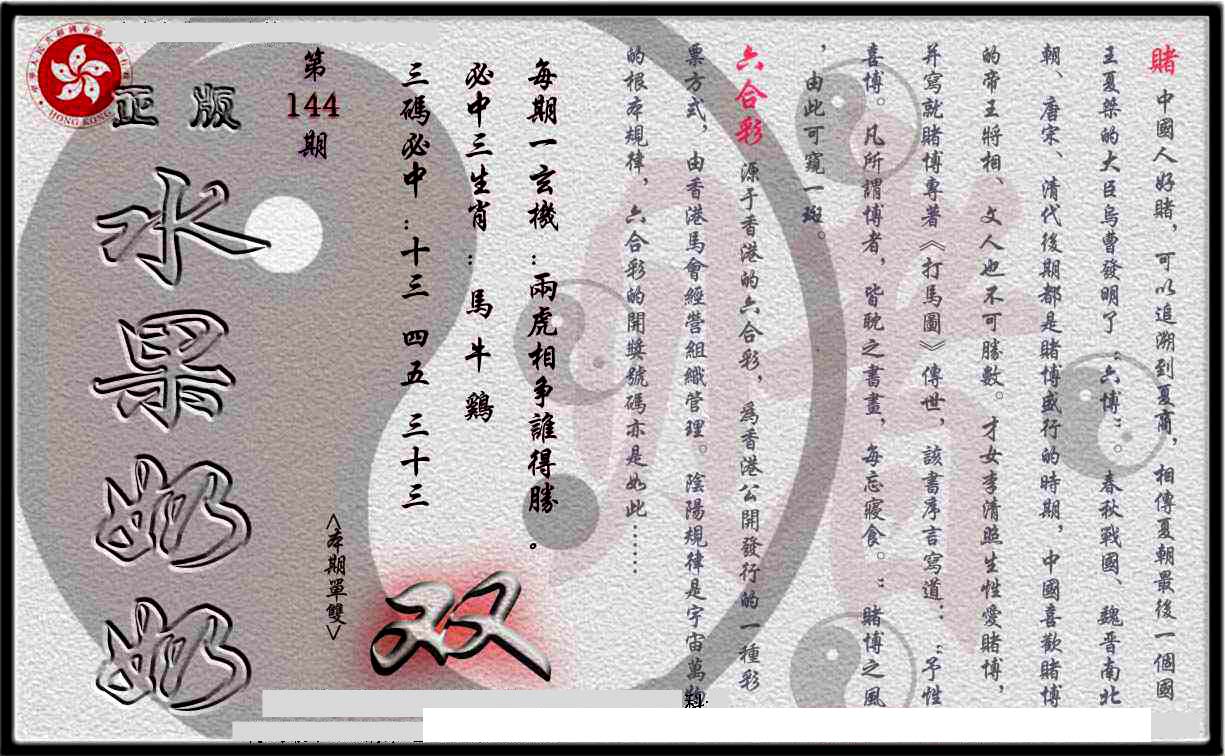 賭 中國人好賭，可以追溯到夏商，相傳夏朝最後一個國
王夏桀的大臣烏曹發明了“六博”。春秋戰國、魏晉南北
朝、唐宋、清代後期都是賭博盛行的時期，中國喜歡賭博
的帝王將相、文人也不可勝數。才女李清照生性愛賭博，
并寫就賭博專著《打馬圖》傳世，該書序言寫道：“予性
喜博。凡所謂博者，皆耽之書畫，每忘寢食。”賭博之風
，由此可窺一斑。
六合彩 源于香港的六合彩，爲香港公開發行的一種彩
票方式，由香港馬會經營組織管理。陰陽規律是宇宙萬物
的根本規律，六合彩的開獎號碼亦是如此……
每期一玄機：兩虎相爭誰得勝。
必中三生肖：馬 牛 鷄
三碼必中：十三 四五 三十三
<本期單雙>
双
第
144
期
正版
水果奶奶
HONG KONG